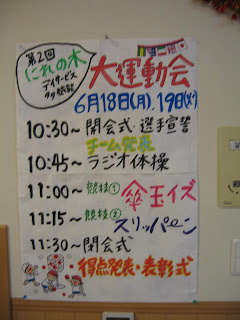 第2回
にれの木
デイサービス
大運動会
6月18日(月), 19日(火)
10:30〜 開会式・選手宣誓
チーム発表
10:45〜 ラジオ体操
11:00〜 競技① 傘玉イズ
11:15〜 競技② スリッパ〜ン
11:30〜 閉会式
得点発表・表彰式